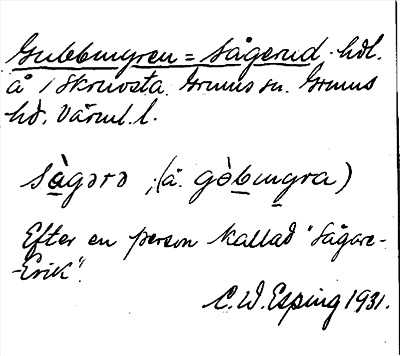 Gubbmyren = Sågerud. hdl.
å 1 Skruvsta. Grums sn. Grums
hd. Värml. l.
sàgərə ; (å. gòbmyra)
Efter en person kallad "Sågare-
-Erik".
C. W. Esping 1931.